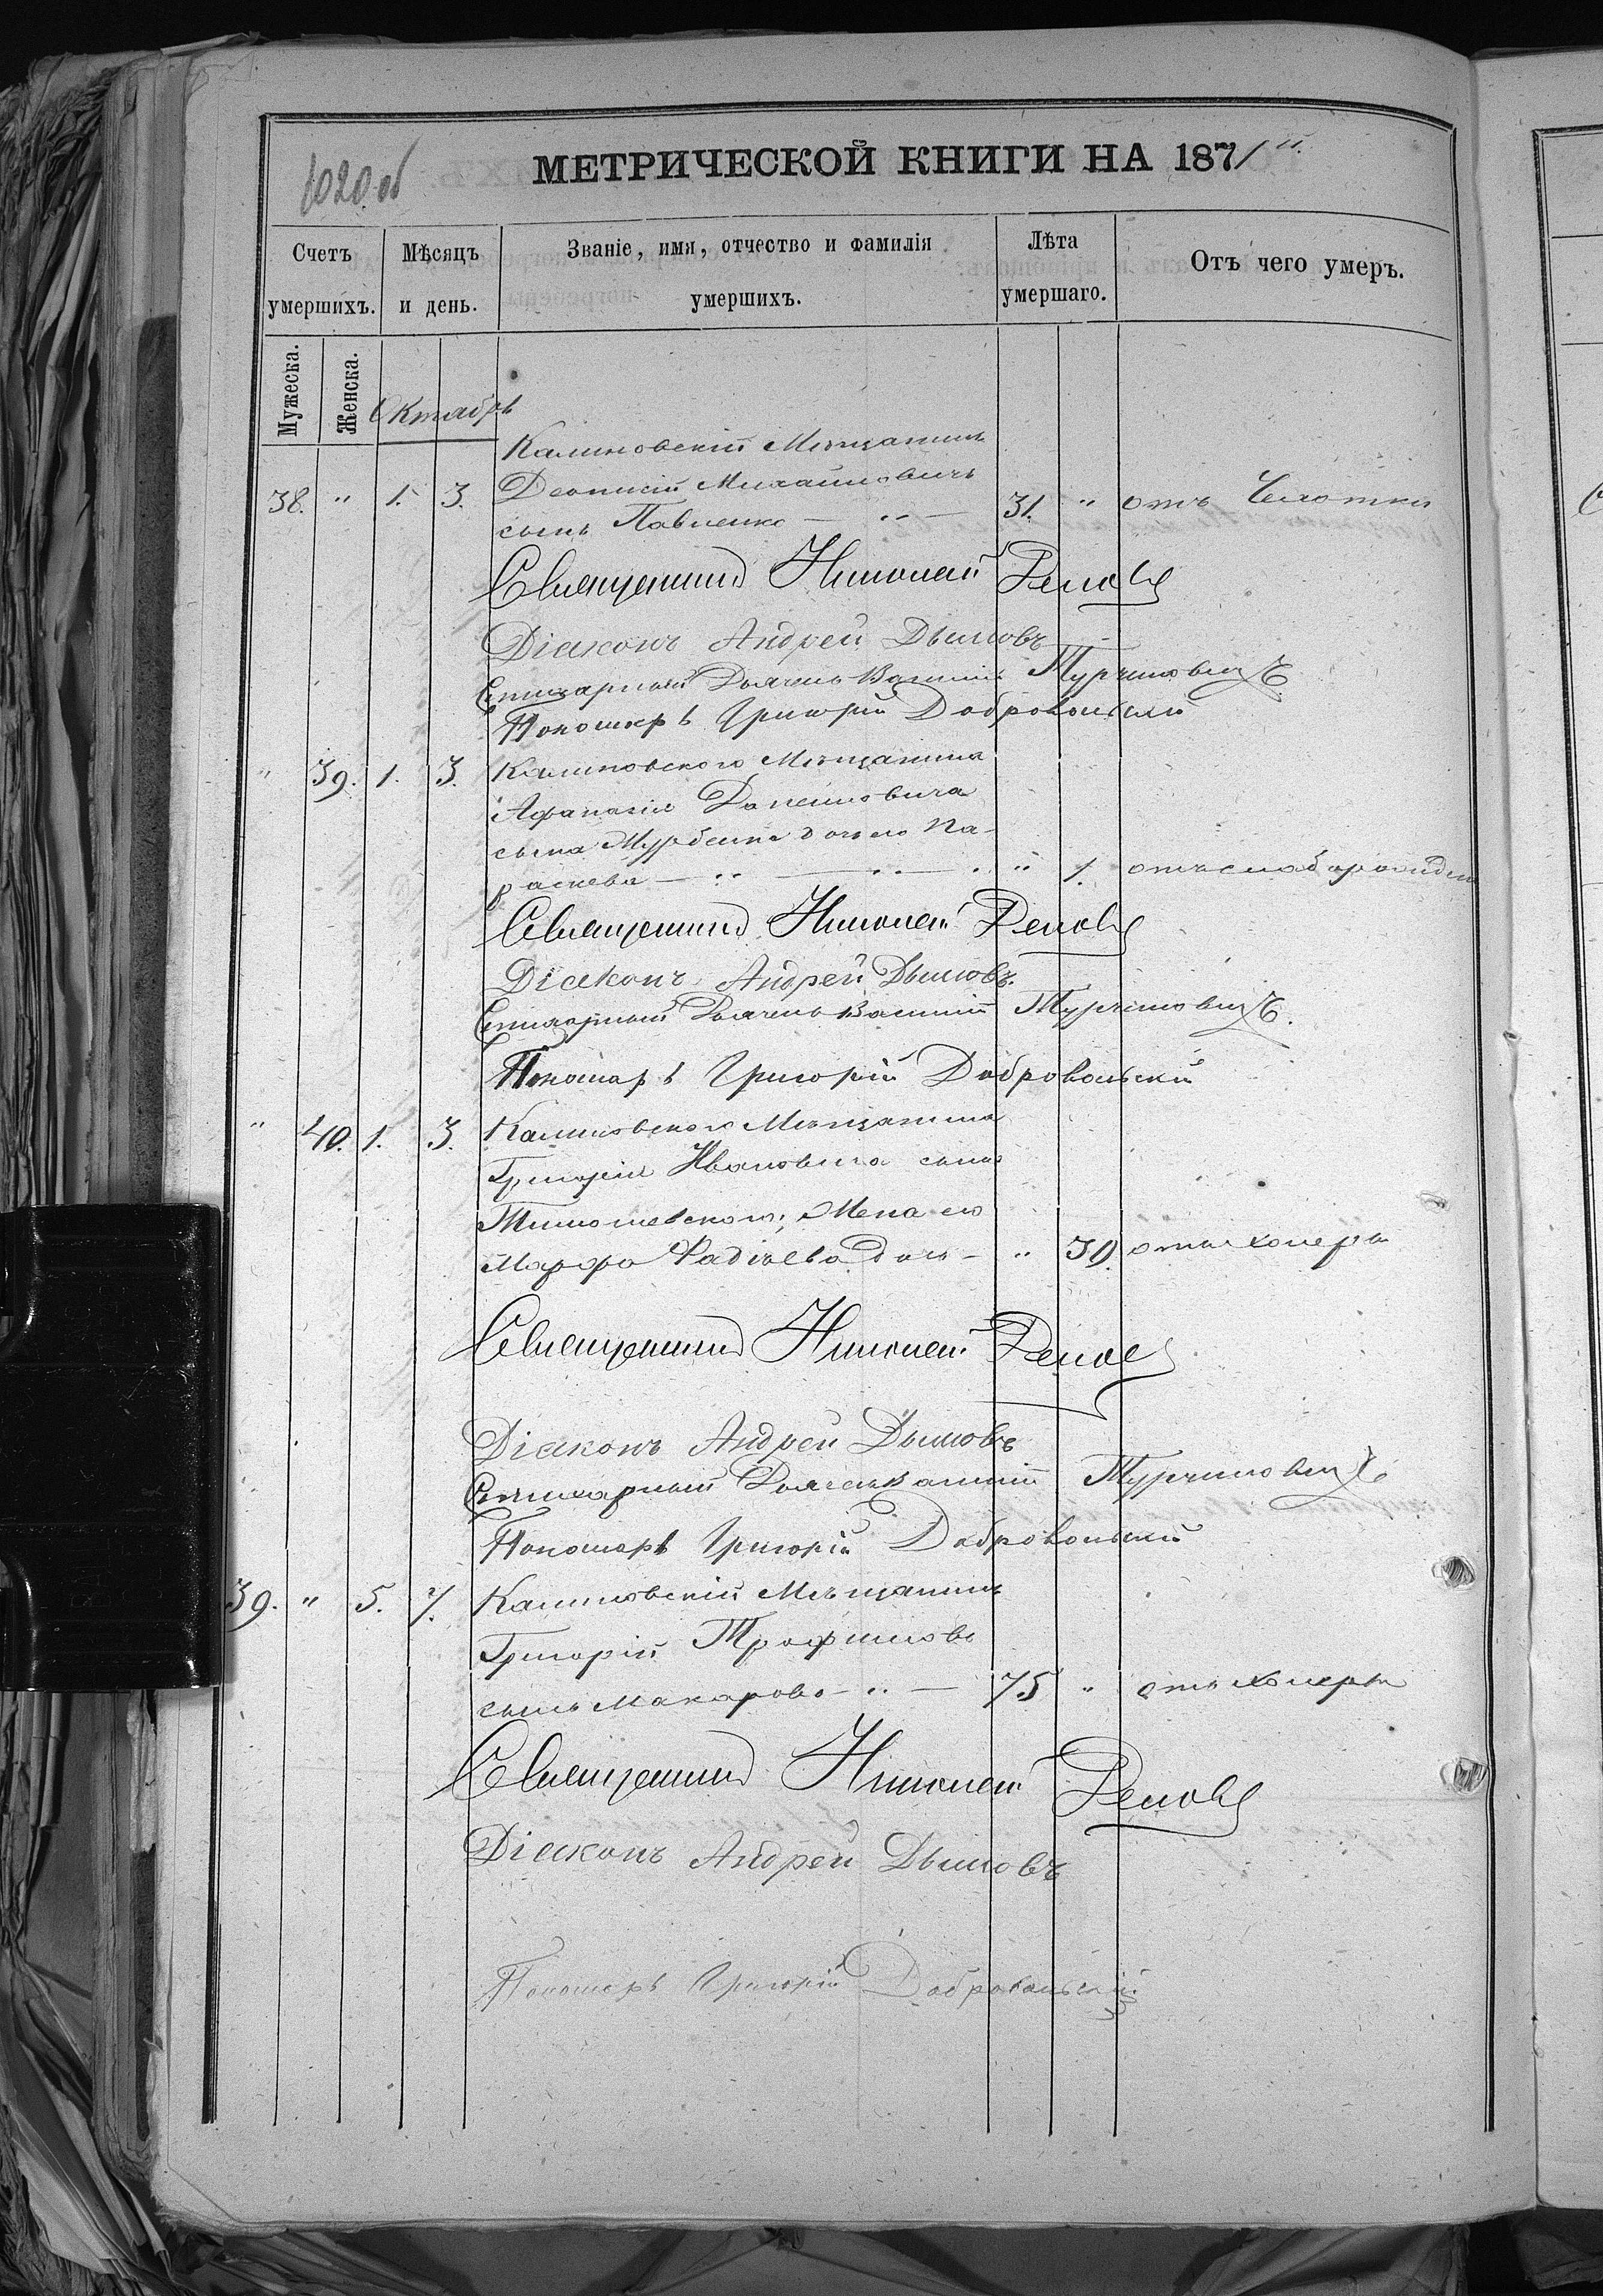 1020 об
МЕТРИЧЕСКОЙ КНИГИ НА 1871 й.
Счетъ умершихъ.
Мѣсяцъ и день.
Званіе, имя, отчество и фамилія умершихъ.
Лѣта умершаго.
Отъ чего умеръ.
Мужеска.
Женска.
Октябрь
Калиновскій Мѣщанинъ
38. " 1. 3. Леонтій Михайловичъ
сынъ Павленко — " — 31. " отъ Чахотки
Священникъ Николай
Діаконъ Андрей Дымовъ
Стихарный Дьячекъ Василій Турчиновичъ
Пономарь Григорій Добровольскій
" 39. 1. 3. Калиновского Мѣщанина
Афанасія Даниловича
сына дочь его Па-
раскева — " — " — " 1.
Священникъ Николай
Діаконъ Андрей Дымовъ.
Стихарный Дьячекъ Василій Турчиновичъ.
Пономарь Григорій Добровольскій
" 40. 1. 3. Калиновского Мѣщанина
Григорія Ивановича сына
Жена его
Марфа Фадѣева дочь — " 39. отъ холеры
Священникъ Николай
Діаконъ Андрей Дымовъ
Стихарный Дьячекъ Василій Турчиновичъ
Пономарь Григорій Добровольскій
39. " 5. 7. Калиновскій Мѣщанинъ
Григорій Трофимовъ
сынъ Макарово — " — 75 " отъ холеры
Священникъ Николай
Діаконъ Андрей Дымовъ
Пономарь Григорій Добровольскій